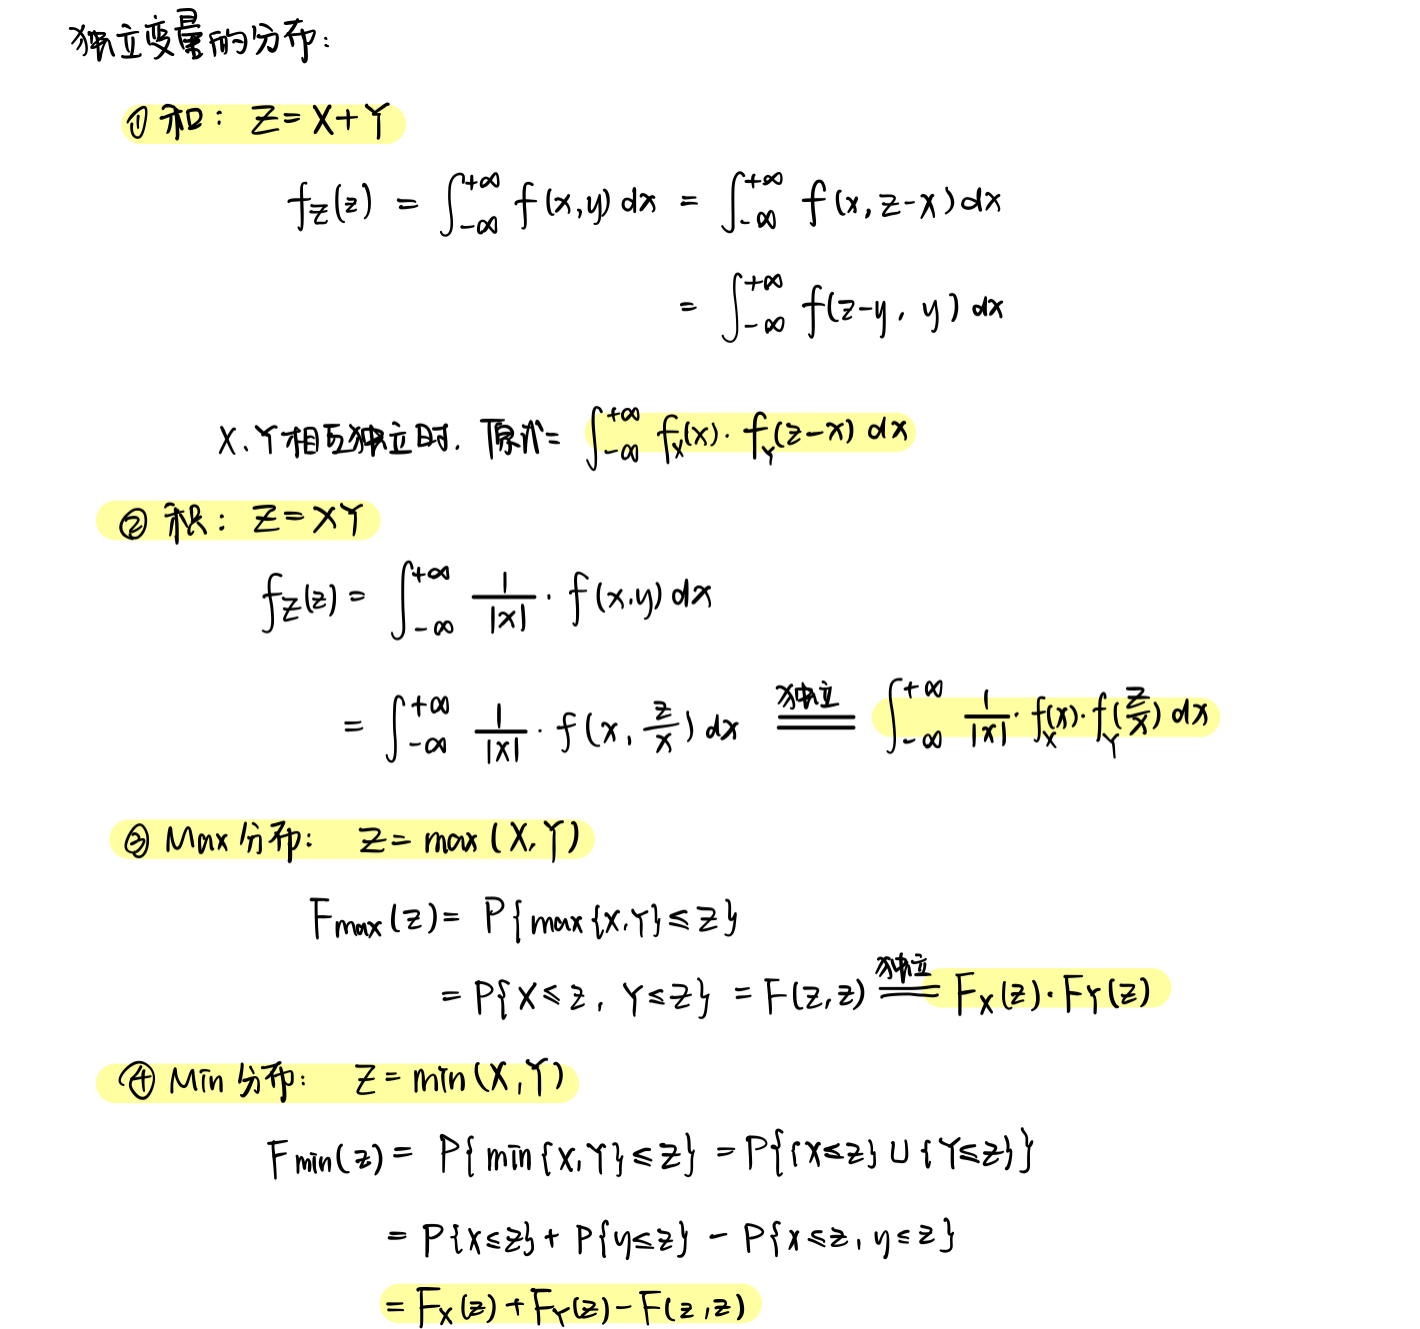 独立变量的分布:
① 和: Z=X+Y
f_Z(z) = ∫_{-∞}^{+∞} f(x,y) dx = ∫_{-∞}^{+∞} f(x, z-x) dx
= ∫_{-∞}^{+∞} f(z-y, y) dx
X、Y相互独立时, 原式= ∫_{-∞}^{+∞} f_X(x)· f_Y(z-x) dx
② 积: Z=XY
f_Z(z) = ∫_{-∞}^{+∞} 1/|x| · f(x,y) dx
= ∫_{-∞}^{+∞} 1/|x| · f(x, z/x) dx 独立 ∫_{-∞}^{+∞} 1/|x| · f_X(x)· f_Y(z/x) dx
③ Max分布: Z=max(X,Y)
F_max(z)= P{max{X,Y}≤z}
= P{X≤z, Y≤z} = F(z,z) 独立 F_X(z)·F_Y(z)
④ Min分布: Z=min(X,Y)
F_min(z)= P{min{X,Y}≤z} =P{{X≤z}∪{Y≤z}}
= P{X≤z}+P{y≤z} - P{x≤z, y≤z}
= F_X(z)+F_Y(z)-F(z,z)